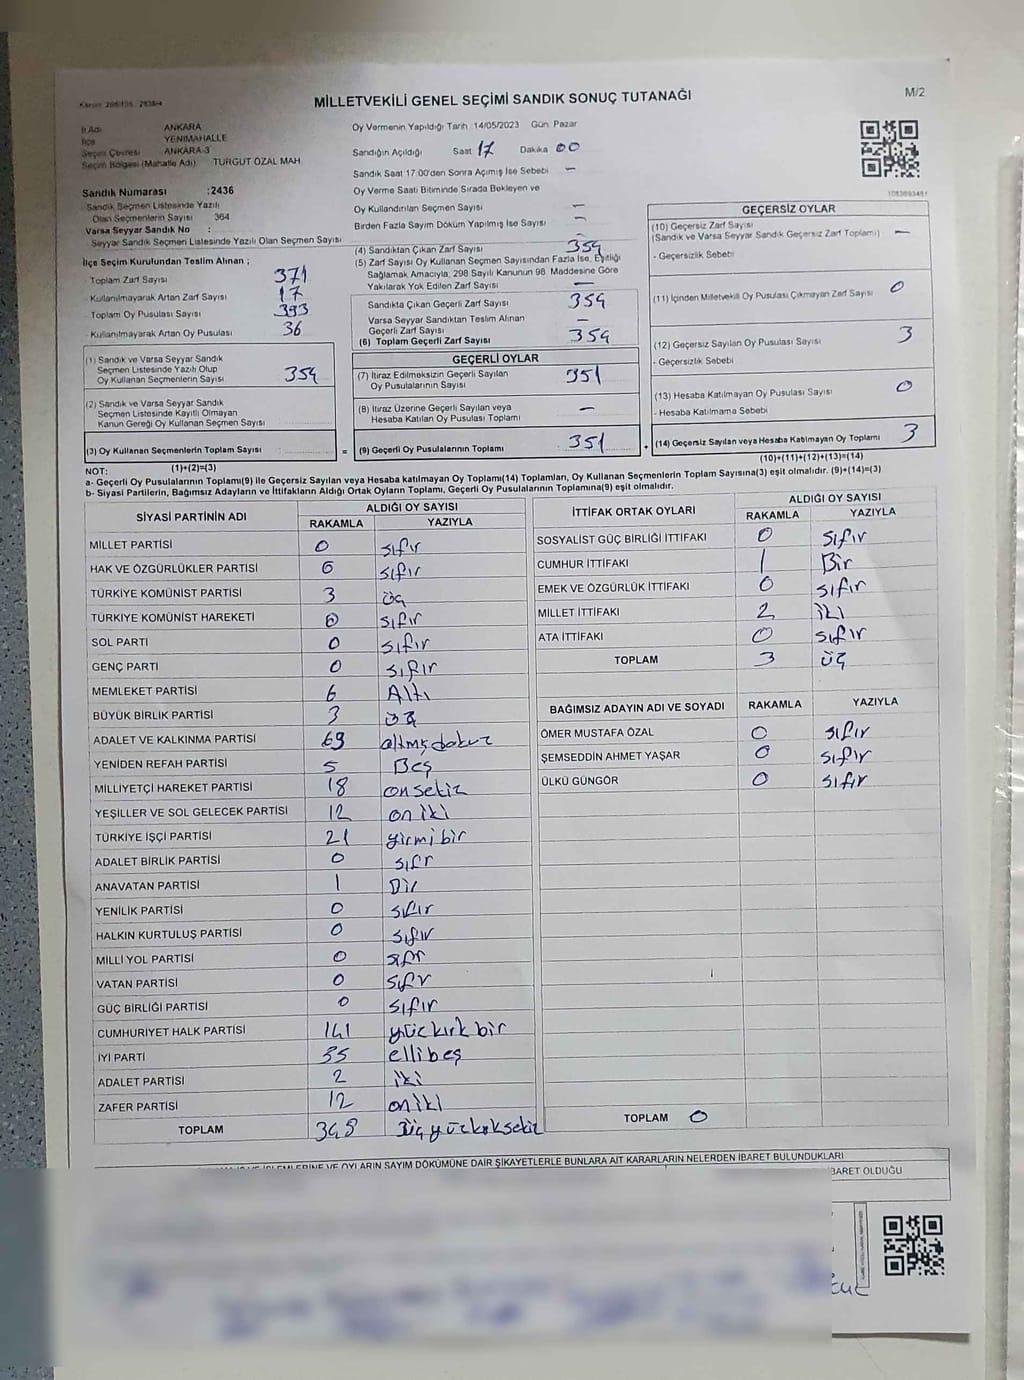 MİLLETVEKİLİ GENEL SEÇİMİ SANDIK SONUÇ TUTANAĞI
M/2
İl Adı ANKARA
İlçe YENİMAHALLE
Seçim Çevresi ANKARA-3
Seçim Bölgesi (Mahalle Adı) TURGUT ÖZAL MAH
Sandık Numarası :2436
Sandık Seçmen Listesinde Yazılı
Olan Seçmenlerin Sayısı 364
Varsa Seyyar Sandık No :
Seyyar Sandık Seçmen Listesinde Yazılı Olan Seçmen Sayısı
İlçe Seçim Kurulundan Teslim Alınan ;
- Toplam Zarf Sayısı 371
- Kullanılmayarak Artan Zarf Sayısı 17
- Toplam Oy Pusulası Sayısı 393
- Kullanılmayarak Artan Oy Pusulası 36
(1) Sandık ve Varsa Seyyar Sandık
Seçmen Listesinde Yazılı Olup
Oy Kullanan Seçmenlerin Sayısı 354
(2) Sandık ve Varsa Seyyar Sandık
Seçmen Listesinde Kayıtlı Olmayan
Kanun Gereği Oy Kullanan Seçmen Sayısı
(3) Oy Kullanan Seçmenlerin Toplam Sayısı :
(1)+(2)=(3)
Oy Vermenin Yapıldığı Tarih 14/05/2023 Gün Pazar
Sandığın Açıldığı Saat 17 Dakika 00
Sandık Saat 17:00'den Sonra Açımış İse Sebebi —
Oy Verme Saati Bitiminde Sırada Bekleyen ve
Oy Kullandırılan Seçmen Sayısı —
Birden Fazla Sayım Döküm Yapılmış İse Sayısı —
(4) Sandıktan Çıkan Zarf Sayısı 354
(5) Zarf Sayısı Oy Kullanan Seçmen Sayısından Fazla İse, Eşitliği
Sağlamak Amacıyla, 298 Sayılı Kanunun 98 Maddesine Göre
Yakılarak Yok Edilen Zarf Sayısı —
Sandıkta Çıkan Geçerli Zarf Sayısı 354
Varsa Seyyar Sandıktan Teslim Alınan
Geçerli Zarf Sayısı —
(6) Toplam Geçerli Zarf Sayısı 354
GEÇERLİ OYLAR
(7) İtiraz Edilmeksizin Geçerli Sayılan
Oy Pusulalarının Sayısı 351
(8) İtiraz Üzerine Geçerli Sayılan veya
Hesaba Katılan Oy Pusulası Toplamı —
= (9) Geçerli Oy Pusulalarının Toplamı 351
1083893481
GEÇERSİZ OYLAR
(10) Geçersiz Zarf Sayısı
(Sandık ve Varsa Seyyar Sandık Geçersiz Zarf Toplamı) —
- Geçersizlik Sebebi
(11) İçinden Milletvekili Oy Pusulası Çıkmayan Zarf Sayısı 0
(12) Geçersiz Sayılan Oy Pusulası Sayısı 3
- Geçersizlik Sebebi
(13) Hesaba Katılmayan Oy Pusulası Sayısı 0
- Hesaba Katılmama Sebebi
+ (14) Geçersiz Sayılan veya Hesaba Katılmayan Oy Toplamı 3
(10)+(11)+(12)+(13)=(14)
NOT:
a- Geçerli Oy Pusulalarının Toplamı(9) ile Geçersiz Sayılan veya Hesaba katılmayan Oy Toplamı(14) Toplamları, Oy Kullanan Seçmenlerin Toplam Sayısına(3) eşit olmalıdır. (9)+(14)=(3)
b- Siyasi Partilerin, Bağımsız Adayların ve İttifakların Aldığı Ortak Oyların Toplamı, Geçerli Oy Pusulalarının Toplamına(9) eşit olmalıdır.
SİYASİ PARTİNİN ADI ALDIĞI OY SAYISI
RAKAMLA YAZIYLA
MİLLET PARTİSİ 0 sıfır
HAK VE ÖZGÜRLÜKLER PARTİSİ 0 sıfır
TÜRKİYE KOMÜNİST PARTİSİ 3 üç
TÜRKİYE KOMÜNİST HAREKETİ 0 sıfır
SOL PARTİ 0 sıfır
GENÇ PARTİ 0 sıfır
MEMLEKET PARTİSİ 6 Altı
BÜYÜK BİRLİK PARTİSİ 3 üç
ADALET VE KALKINMA PARTİSİ 69 altmışdokuz
YENİDEN REFAH PARTİSİ 5 Beş
MİLLİYETÇİ HAREKET PARTİSİ 18 onsekiz
YEŞİLLER VE SOL GELECEK PARTİSİ 12 oniki
TÜRKİYE İŞÇİ PARTİSİ 21 yirmibir
ADALET BİRLİK PARTİSİ 0 sıfr
ANAVATAN PARTİSİ 1 Bir
YENİLİK PARTİSİ 0 sıfır
HALKIN KURTULUŞ PARTİSİ 0 sıfır
MİLLİ YOL PARTİSİ 0 sıfr
VATAN PARTİSİ 0 sıfr
GÜÇ BİRLİĞİ PARTİSİ 0 sıfır
CUMHURİYET HALK PARTİSİ 141 yüzkırkbir
İYİ PARTİ 55 ellibeş
ADALET PARTİSİ 2 iki
ZAFER PARTİSİ 12 oniki
TOPLAM 348 üçyüzkırksekiz
İTTİFAK ORTAK OYLARI ALDIĞI OY SAYISI
RAKAMLA YAZIYLA
SOSYALİST GÜÇ BİRLİĞİ İTTİFAKI 0 sıfır
CUMHUR İTTİFAKI 1 Bir
EMEK VE ÖZGÜRLÜK İTTİFAKI 0 sıfır
MİLLET İTTİFAKI 2 iki
ATA İTTİFAKI 0 sıfır
TOPLAM 3 üç
BAĞIMSIZ ADAYIN ADI VE SOYADI RAKAMLA YAZIYLA
ÖMER MUSTAFA ÖZAL 0 sıfır
ŞEMSEDDİN AHMET YAŞAR 0 sıfır
ÜLKÜ GÜNGÖR 0 sıfır
TOPLAM 0
OYLARIN SAYIM DÖKÜMÜNE DAİR ŞİKAYETLERLE BUNLARA AİT KARARLARIN NELERDEN İBARET BULUNDUKLARI
BARET OLDUĞU